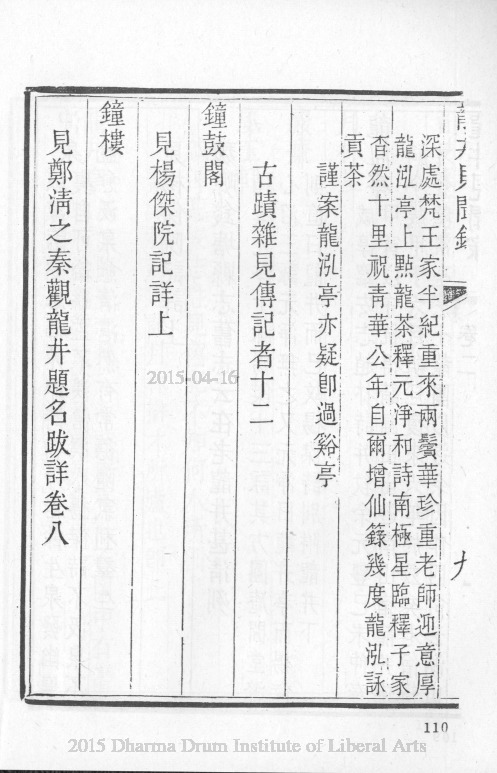 龍井見聞錄
九
深處梵王家半紀重來兩鬢華珍重老師迎意厚
龍泓亭上㸃龍茶釋元淨和詩南極星臨釋子家
杳然十里祝靑華公年自爾增仙籙幾度龍泓詠
貢茶
謹案龍泓亭亦疑卽過谿亭
古蹟雜見傳記者十一
鐘鼓閣
見楊傑院記詳上
鐘樓
見鄭淸之秦觀龍井題名跋詳卷八
2015-04-16
110
2015 Dharma Drum Institute of Liberal Arts